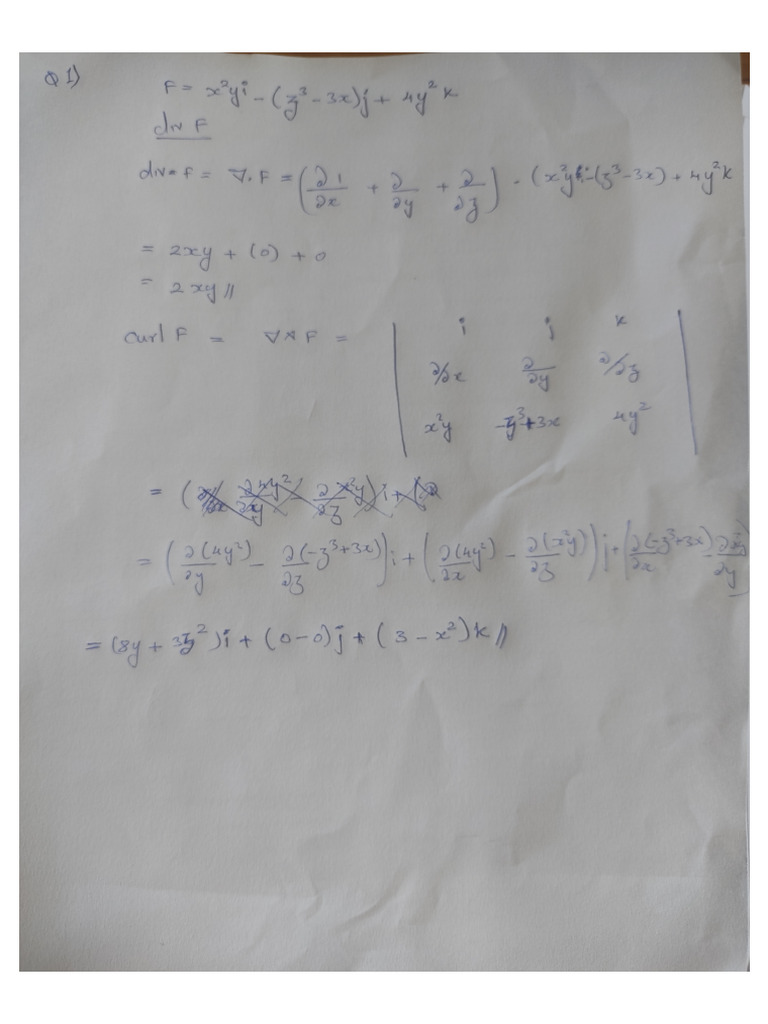 Q1)
F = x²yi - (z³ - 3x)j + 4y²k
div F
div. F = ∇.F = (∂/∂x + ∂/∂y + ∂/∂z) . (x²yi - (z³ - 3x) + 4y²k
= 2xy + (0) + 0
= 2xy //
Curl F = ∇ ∧ F = | i j k
∂/∂x ∂/∂y ∂/∂z
x²y -z³+3x 4y² |
= (∂(4y²)/∂y - ∂(-z³+3x)/∂z)i + (∂(4y²)/∂x - ∂(x²y)/∂z)j + (∂(-z³+3x)/∂x - ∂x²y/∂y)
= (8y + 3z²)i + (0-0)j + (3 - x²)k //